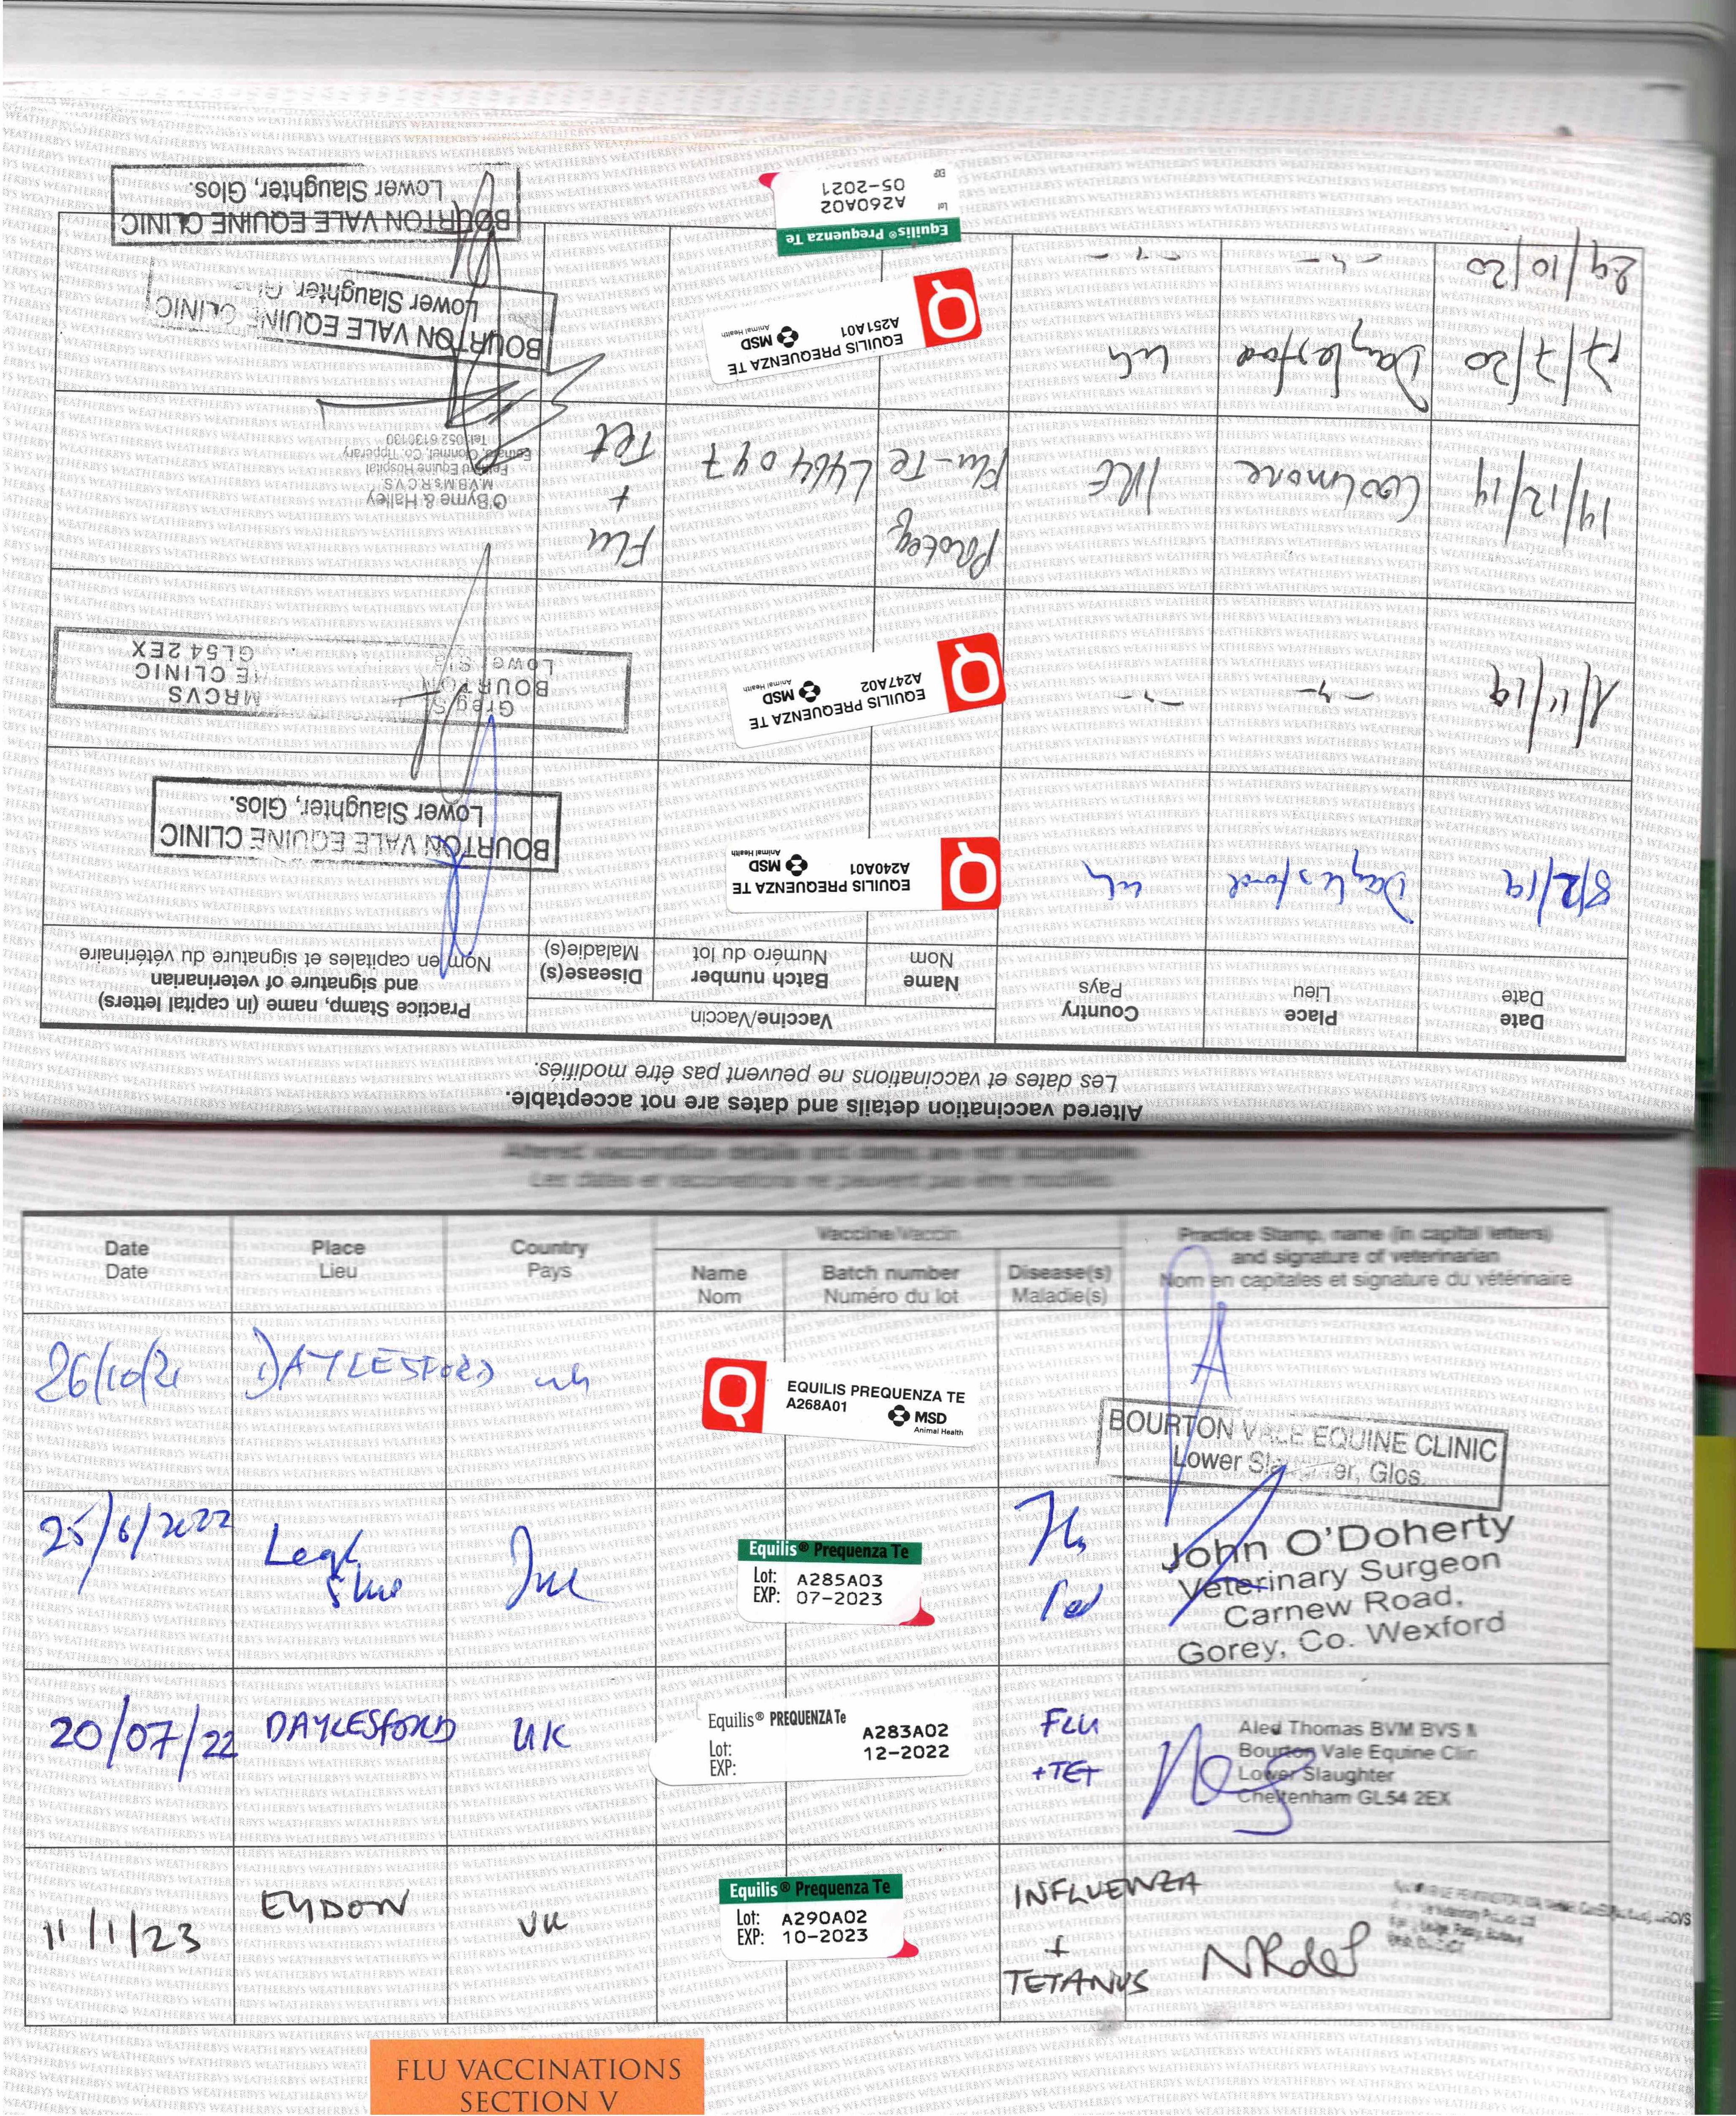 Altered vaccination details and dates are not acceptable.
Les dates et vaccinations ne peuvent pas être modifiés.
Date
Date
Place
Lieu
Country
Pays
Vaccine/Vaccin
Name
Nom
Batch number
Numéro du lot
Disease(s)
Maladie(s)
Practice Stamp, name (in capital letters)
and signature of veterinarian
Nom en capitales et signature du vétérinaire
8/2/19
Daylesford
uk
EQUILIS PREQUENZA TE
A240A01
MSD
Animal Health
BOURTON VALE EQUINE CLINIC
Lower Slaughter, Glos.
1/11/19
-"-
-"-
EQUILIS PREQUENZA TE
A247A02
MSD
Animal Health
Greg S MRCVS
BOURTON E CLINIC
Lower GL54 2EX
14/12/19
Coolmore
IRE
Proteq
Flu-Te
L464047
Flu
+
Tet
O'Byrne & Halley
M.V.B M.R.C.V.S.
Fethard Equine Hospital
Fethard, Clonmel, Co. Tipperary
Tel: 052 6130130
17/7/20
Daylesford
uk
EQUILIS PREQUENZA TE
A251A01
MSD
Animal Health
BOURTON VALE EQUINE CLINIC
Lower Slaughter
29/10/20
-"-
-"-
Equilis® Prequenza Te
Lot A260A02
EXP 05-2021
BOURTON VALE EQUINE CLINIC
Lower Slaughter, Glos.
Altered vaccination details and dates are not acceptable.
Les dates et vaccinations ne peuvent pas être modifiés.
Date
Date
Place
Lieu
Country
Pays
Vaccine/Vaccin
Name
Nom
Batch number
Numéro du lot
Disease(s)
Maladie(s)
Practice Stamp, name (in capital letters)
and signature of veterinarian
Nom en capitales et signature du vétérinaire
26/10/21
DAYLESFORD
uk
EQUILIS PREQUENZA TE
A268A01
MSD
Animal Health
BOURTON VALE EQUINE CLINIC
Lower Slaughter, Glos.
25/6/2022
Equilis® Prequenza Te
Lot: A285A03
EXP: 07-2023
John O'Doherty
Veterinary Surgeon
Carnew Road,
Gorey, Co. Wexford
20/07/22
DAYLESFORD
UK
Equilis® PREQUENZA Te
A283A02
Lot: 12-2022
EXP:
FLU
+TET
Aled Thomas BVM BVS M
Bourton Vale Equine Clin
Lower Slaughter
Cheltenham GL54 2EX
11/1/23
EYDON
UK
Equilis® Prequenza Te
Lot: A290A02
EXP: 10-2023
INFLUENZA
+
TETANUS
FLU VACCINATIONS
SECTION V